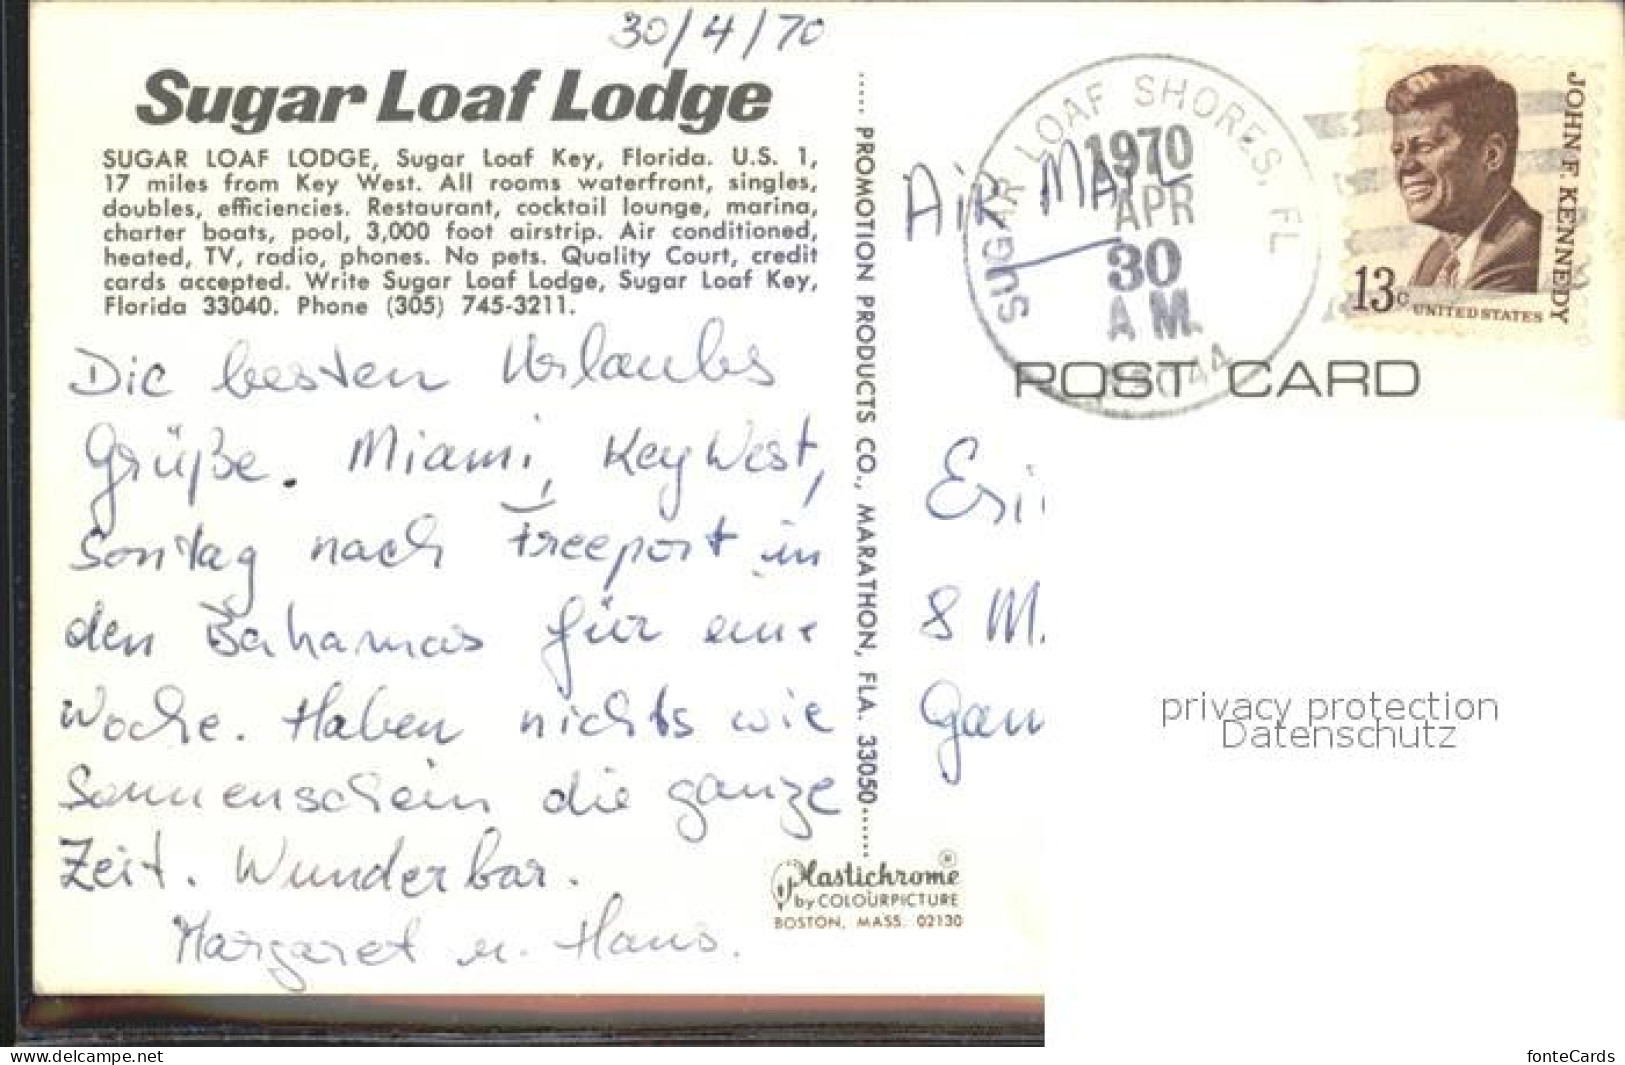 30/4/70
Sugar Loaf Lodge
SUGAR LOAF LODGE, Sugar Loaf Key, Florida. U.S. 1,
17 miles from Key West. All rooms waterfront, singles,
doubles, efficiencies. Restaurant, cocktail lounge, marina,
charter boats, pool, 3,000 foot airstrip. Air conditioned,
heated, TV, radio, phones. No pets. Quality Court, credit
cards accepted. Write Sugar Loaf Lodge, Sugar Loaf Key,
Florida 33040. Phone (305) 745-3211.
Die besten Urlaubs
Grüße. Miami, Key West,
Sonntag nach Freeport in
den Bahamas für eine
Woche. Haben nichts wie
Sonnenschein die ganze
Zeit. Wunderbar.
Margaret u. Hans.
..... PROMOTION PRODUCTS CO., MARATHON, FLA. 33050.....
Plastichrome ®
by COLOURPICTURE
BOSTON, MASS. 02130
SUGAR LOAF SHORES, FL
1970
APR
30
A M.
Air Mail
JOHN F. KENNEDY
13c
UNITED STATES
POST CARD
8 M.
privacy protection
Datenschutz
www.delcampe.net
fonteCards